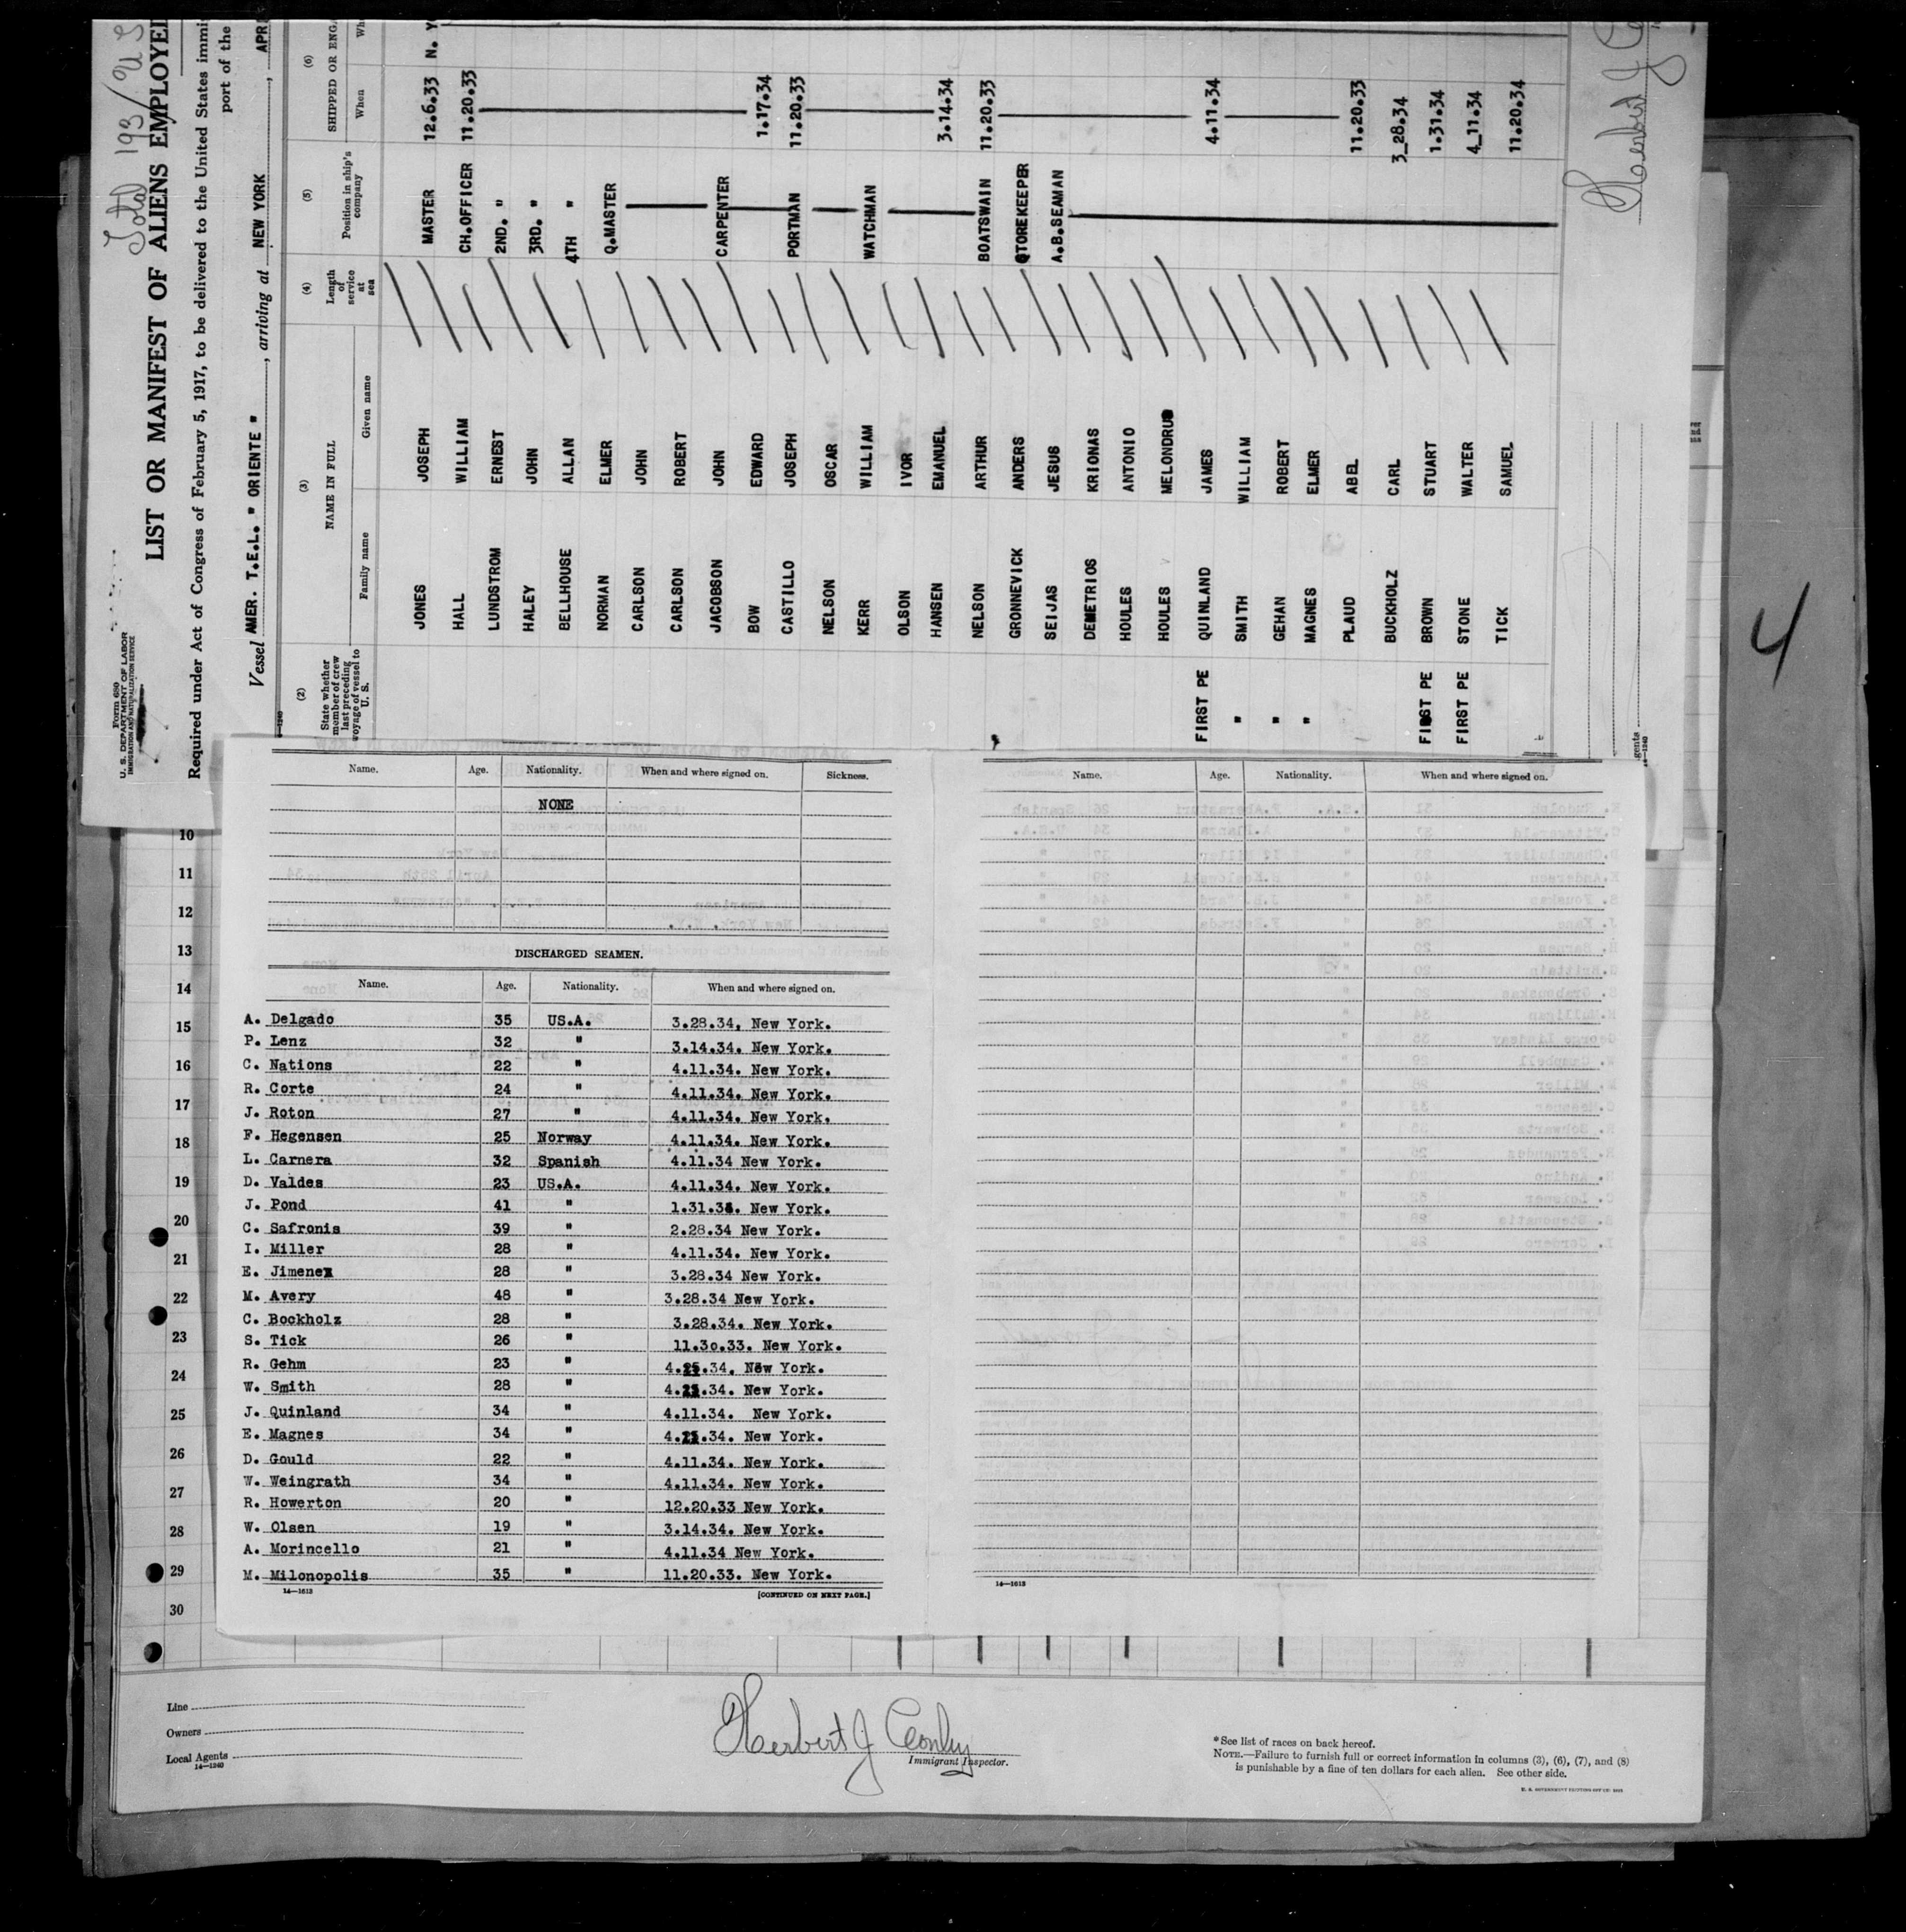 Total 193/US
Form 680
U. S. DEPARTMENT OF LABOR
IMMIGRATION AND NATURALIZATION SERVICE
LIST OR MANIFEST OF ALIENS EMPLOYE
Required under Act of Congress of February 5, 1917, to be delivered to the United States immi
port of the
Vessel AMER. T.E.L. " ORIENTE ", arriving at NEW YORK, APR
(2) (3) (4) (5) (6)
State whether member of crew last preceding voyage of vessel to U. S.
NAME IN FULL
Family name Given name
Length of service at sea
Position in ship's company
SHIPPED OR ENGA
When Wh
JONES JOSEPH MASTER 12.6.33 N. Y
HALL WILLIAM CH.OFFICER 11.20.33
LUNDSTROM ERNEST 2ND. "
HALEY JOHN 3RD. "
BELLHOUSE ALLAN 4TH "
NORMAN ELMER Q.MASTER
CARLSON JOHN
CARLSON ROBERT
JACOBSON JOHN CARPENTER
BOW EDWARD 1.17.34
CASTILLO JOSEPH PORTMAN 11.20.33
NELSON OSCAR
KERR WILLIAM WATCHMAN
OLSON IVOR
HANSEN EMANUEL 3.14.34
NELSON ARTHUR BOATSWAIN 11.20.33
GRONNEVICK ANDERS STOREKEEPER
SEIJAS JESUS A.B.SEAMAN
DEMETRIOS KRIGNAS
HOULES ANTONIO
HOULES MELONDRUS
FIRST PE QUINLAND JAMES 4.11.34
" SMITH WILLIAM
" GEHAN ROBERT
" MAGNES ELMER
PLAUD ABEL 11.20.33
BUCKHOLZ CARL 3_28.34
FIRST PE BROWN STUART 1.31.34
FIRST PE STONE WALTER 4_11.34
TICK SAMUEL 11.20.34
4
Name. Age. Nationality. When and where signed on. Sickness.
NONE
DISCHARGED SEAMEN.
Name. Age. Nationality. When and where signed on.
A. Delgado 35 US.A. 3.28.34, New York.
P. Lenz 32 " 3.14.34. New York.
C. Nations 22 " 4.11.34. New York.
R. Corte 24 " 4.11.34. New York.
J. Roton 27 " 4.11.34. New York.
F. Hegensen 25 Norway 4.11.34. New York.
L. Carnera 32 Spanish 4.11.34 New York.
D. Valdes 23 US.A. 4.11.34. New York.
J. Pond 41 " 1.31.34. New York.
C. Safronis 39 " 2.28.34 New York.
I. Miller 28 " 4.11.34. New York.
E. Jimenez 28 " 3.28.34 New York.
M. Avery 48 " 3.28.34 New York.
C. Bockholz 28 " 3.28.34. New York.
S. Tick 26 " 11.30.33. New York.
R. Gehm 23 " New York.
W. Smith 28 " New York.
J. Quinland 34 " 4.11.34. New York.
E. Magnes 34 " New York.
D. Gould 22 " 4.11.34. New York.
W. Weingrath 34 " 4.11.34. New York.
R. Howerton 20 " 12.20.33 New York.
W. Olsen 19 " 3.14.34. New York.
A. Morincello 21 " 4.11.34 New York.
M. Milonopolis 35 " 11.20.33. New York.
14—1613
[CONTINUED ON NEXT PAGE.]
Name. Age. Nationality. When and where signed on.
14—1613
10
11
12
13
14
15
16
17
18
19
20
21
22
23
24
25
26
27
28
29
30
Line
Owners
Local Agents
14—1240
Herbert J Conley
Immigrant Inspector.
*See list of races on back hereof.
NOTE.—Failure to furnish full or correct information in columns (3), (6), (7), and (8)
is punishable by a fine of ten dollars for each alien. See other side.